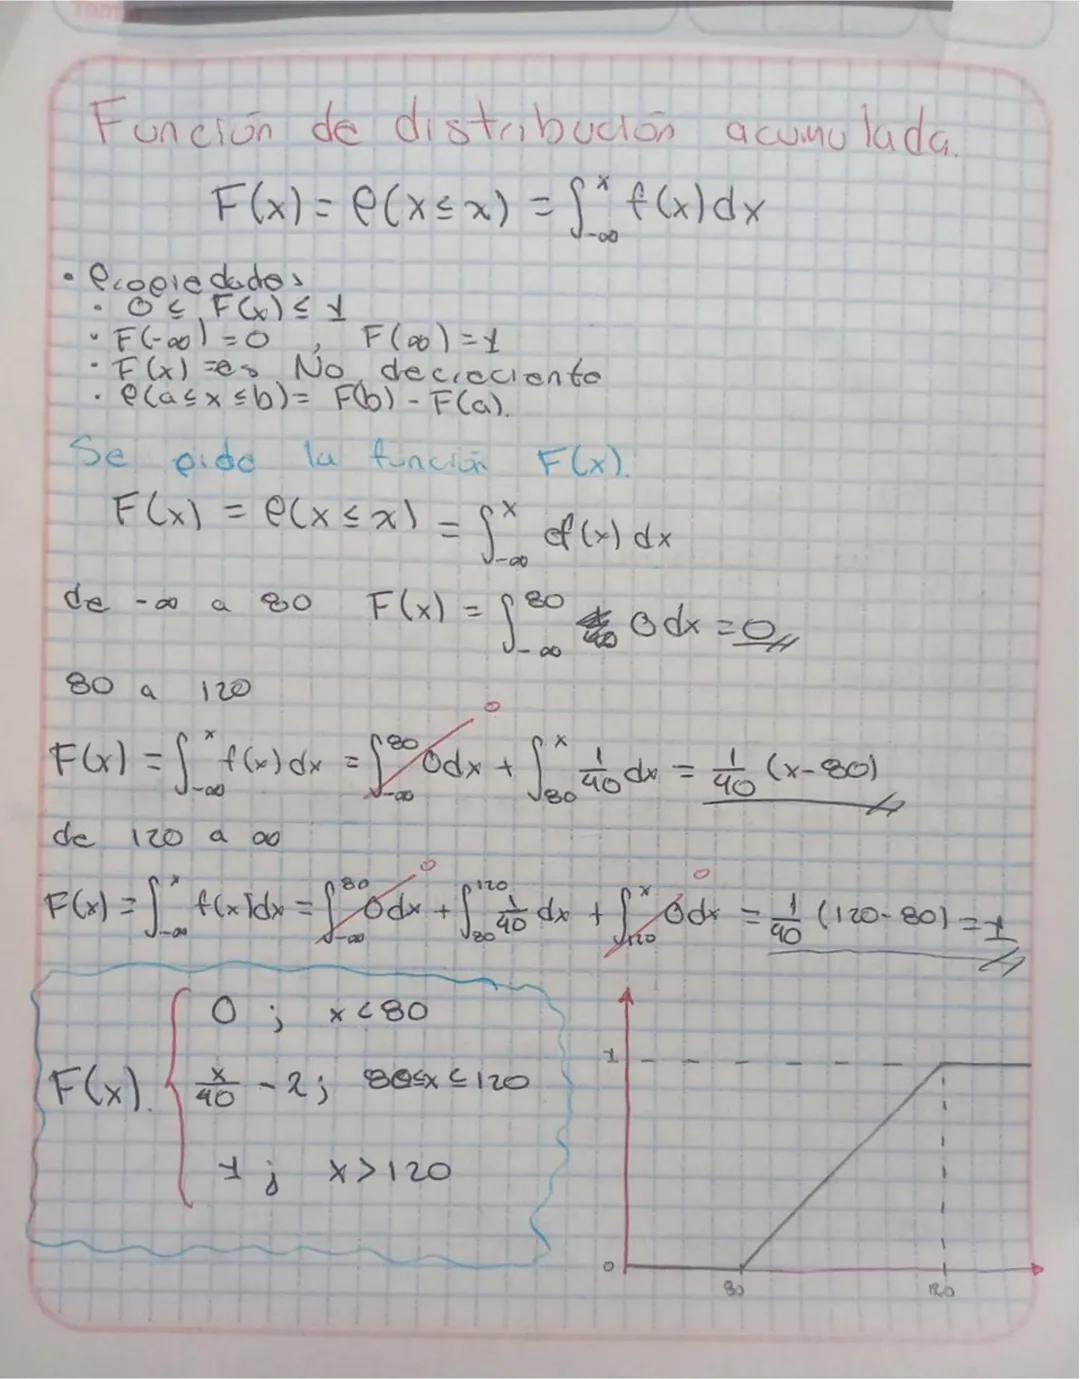 Función de distribución acumulada.
F(x) = P(X ≤ x) = ∫_{-∞}^{x} f(x) dx
• Propiedades
• 0 ≤ F(x) ≤ 1
• F(-∞) = 0 , F(∞) = 1
• F(x) = es No decreciente
• P(a ≤ x ≤ b) = F(b) - F(a).
Se pide la función F(x).
F(x) = P(X ≤ x) = ∫_{-∞}^{x} f(x) dx
de -∞ a 80 F(x) = ∫_{-∞}^{80} 0 dx = 0
80 a 120
F(x) = ∫_{-∞}^{x} f(x) dx = ∫_{-∞}^{80} 0dx + ∫_{80}^{x} 1/40 dx = 1/40 (x-80)
0
de 120 a ∞
F(x) = ∫_{-∞}^{x} f(x) dx = ∫_{-∞}^{80} 0dx + ∫_{80}^{120} 1/40 dx + ∫_{120}^{x} 0dx = 1/40 (120-80) = 1
0 0
0 ; x < 80
F(x). { x/40 - 2 ; 80 ≤ x ≤ 120
1 ; x > 120
1
0
80 120